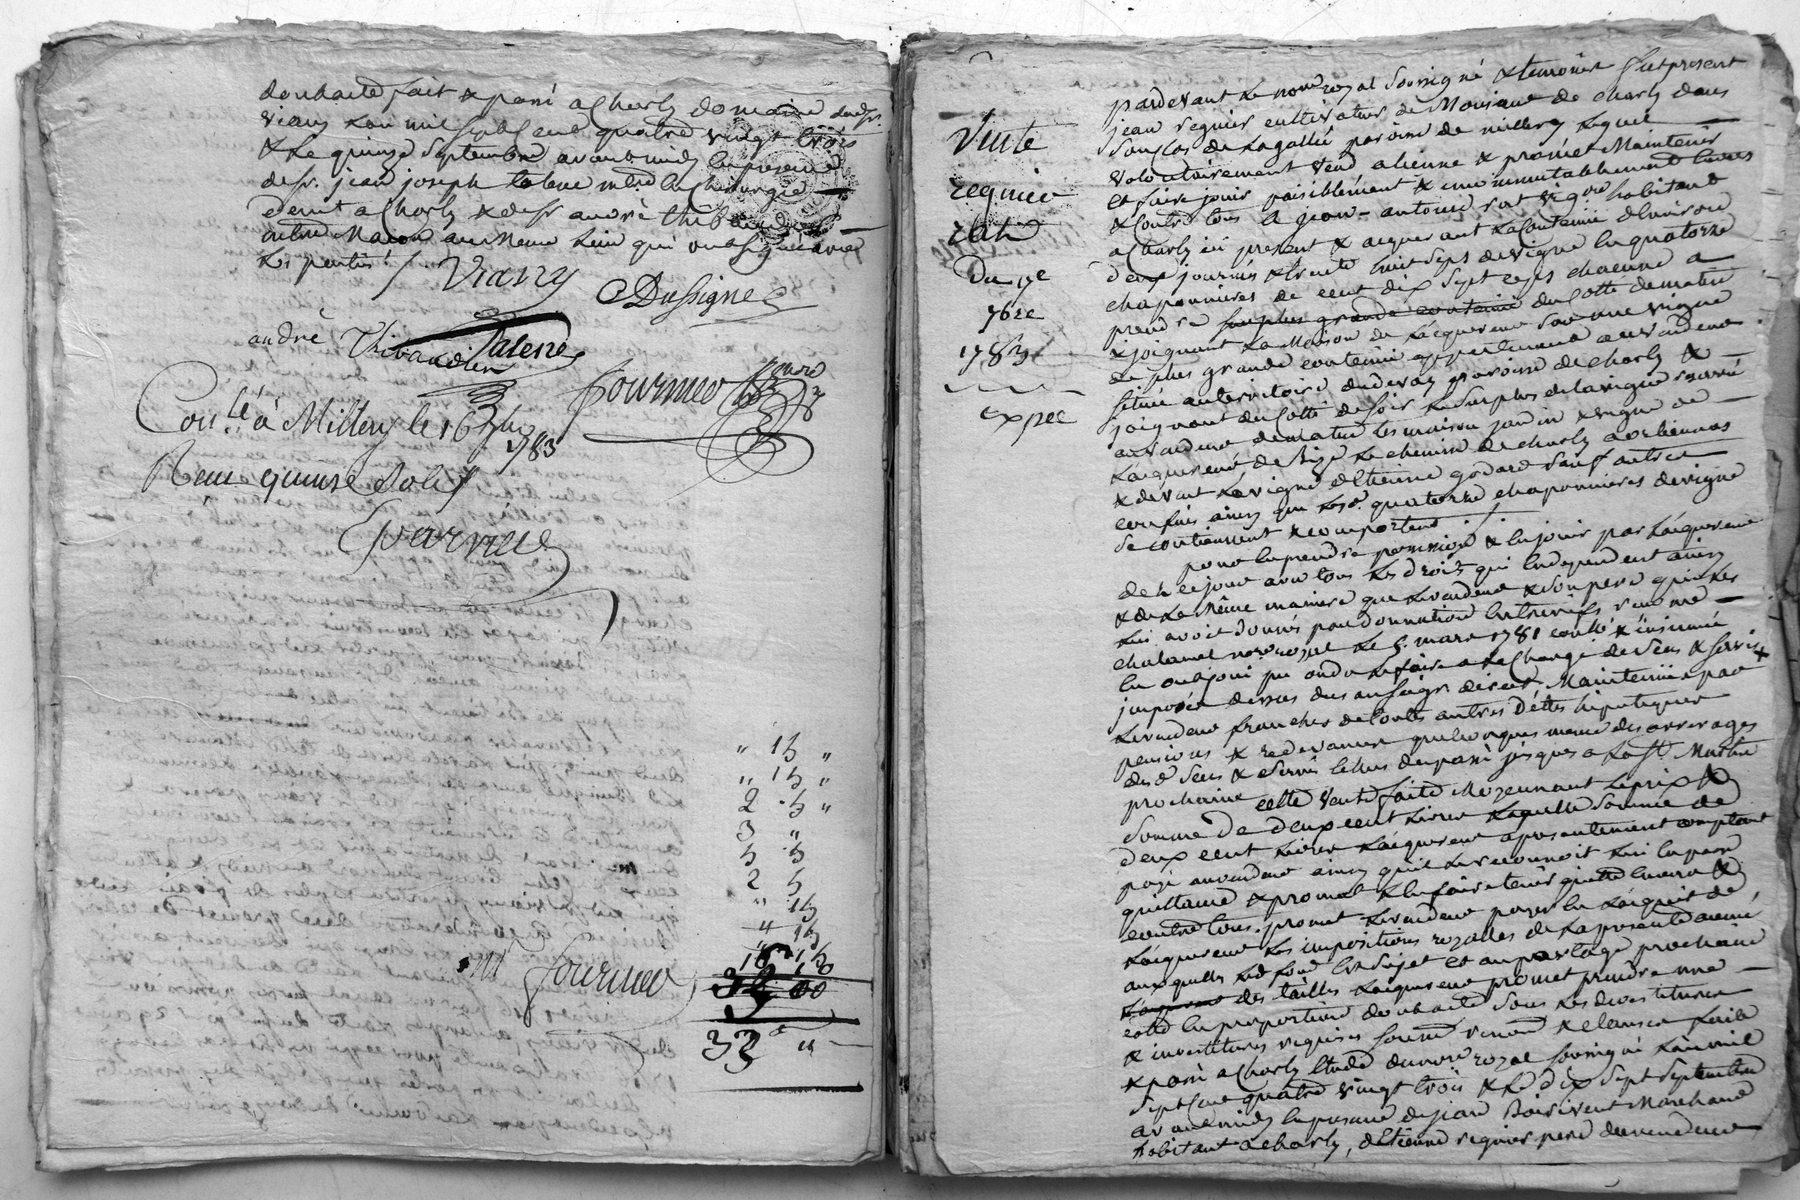 douhaite fait & passé a Charly domaine dud Sr.
Viany Lan mil sept cent quatre vingt trois
& Le quinze Septembre avant midy En presence
de Sr. jean joseph md En Chirurgie
demt a Charly & de Sr andré thibaudier
mtre Macon au meme Lieu qui ont signé avec
Les parties /
Viany
Dussigne
andré Thibaudier
fourneo
Con.lé à Millery le 16 7bre
1783
Recu quinze Sols
" 15 "
" 15 "
2 5 "
3 "
5 5
2 5
" 15
4 15
fourneo
33 "
Vente
regnier
rat
Du 17e
7bre
1783
Expée
pardevant Le nore royal Soussigné & temoins fut present
jean regnier cultivateur de Monsieur de Charly dans
Son clos de Lagallée paroisse de millery Lequel
volontairement vend alienne & promet Maintenir
et faire jouir paisiblement & irrevocablement Envers
& Contre tous A jean-antoine rat vigon habitant
a Charly ici present & acquereur La Contenue d'Environ
deux journés & trente huit seps de vigne En quatorze
chaponnieres de cent dix Sept ceps chacune a
prendre du Cotté de matin
& joignant La Maison de Lacquereur Sur une vigne
de plus grande contenue appartenant au vendeur
Située au territoire paroisse de Charly &
joignant du Cotté de soir Le Surplus de la vigne reservé
au vendeur de matin Les maison jardin & vigne de
Lacquereur de Bize Le chemin de charly a orlienas
& devant La vigne d'Etienne godard Sauf autres
confins ainsy que Lesd. quatorze chaponnieres de vigne
Se contiennent & comportent
pour En prendre possession & En jouir par Lacquereur
de ce jour avec tous Les droits qui En dependent ainsy
& de La Même maniere que Le vendeur & Son pere qui Les
Lui avoit donnés par donnation Entrevifs reçue me
chalamel nore royal Le 5. mars 1781 conllé & insinué
En ont joui pu ou du Le faire a La Charge de Sens & Servis
imposés dessus dus au Seigr direct Maintenüe par
Le vendeur franches de toutes autres dettes hipoteques
pensions & redevances quelconques meme des arrerages
desd Sens & Servis Echus du passé jusques a La St Martin
prochaine cette Vente faite Moyennant Le prix &
Somme de deux cent Livres Laquelle Somme de
deux cent Livres Lacquereur a presentement comptant
payé au vendeur ainsy quil Le reconnoit Lui En passe
quittance & promet & En faire tenir quitte Envers &
contre tous. promet Le vendeur payer En Lacquit de
Lacquereur Les impositions royalles de La presente année
auxquelles Led fond Est Sujet et au partage prochain
des tailles Lacquereur promet prendre une
cotte En proportion douhaite Sous Les devestitures
& investitures requises Soumons renons & clauses fait
& passé a Charly Etude du nore royal Soussigné L'an mil
Sept Cent quatre vingt trois & Le dix Sept Septembre
avant midy En presence de jean Boisivent Marchand
habitant a charly, d'Etienne regnier pere du vendeur